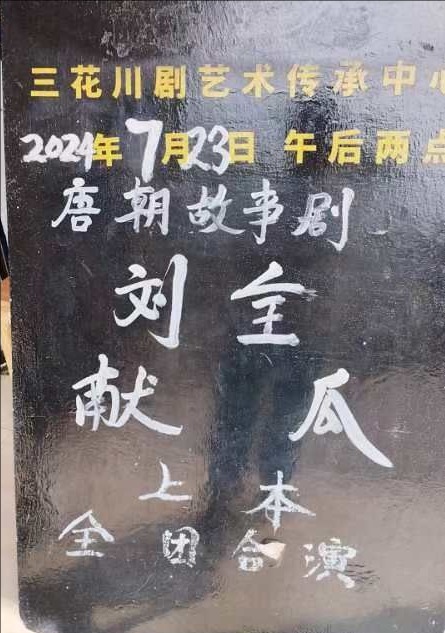 三花川剧艺术传承中心
2024年7月23日 午后两点
唐朝故事剧
刘全
献瓜
上本
全团合演